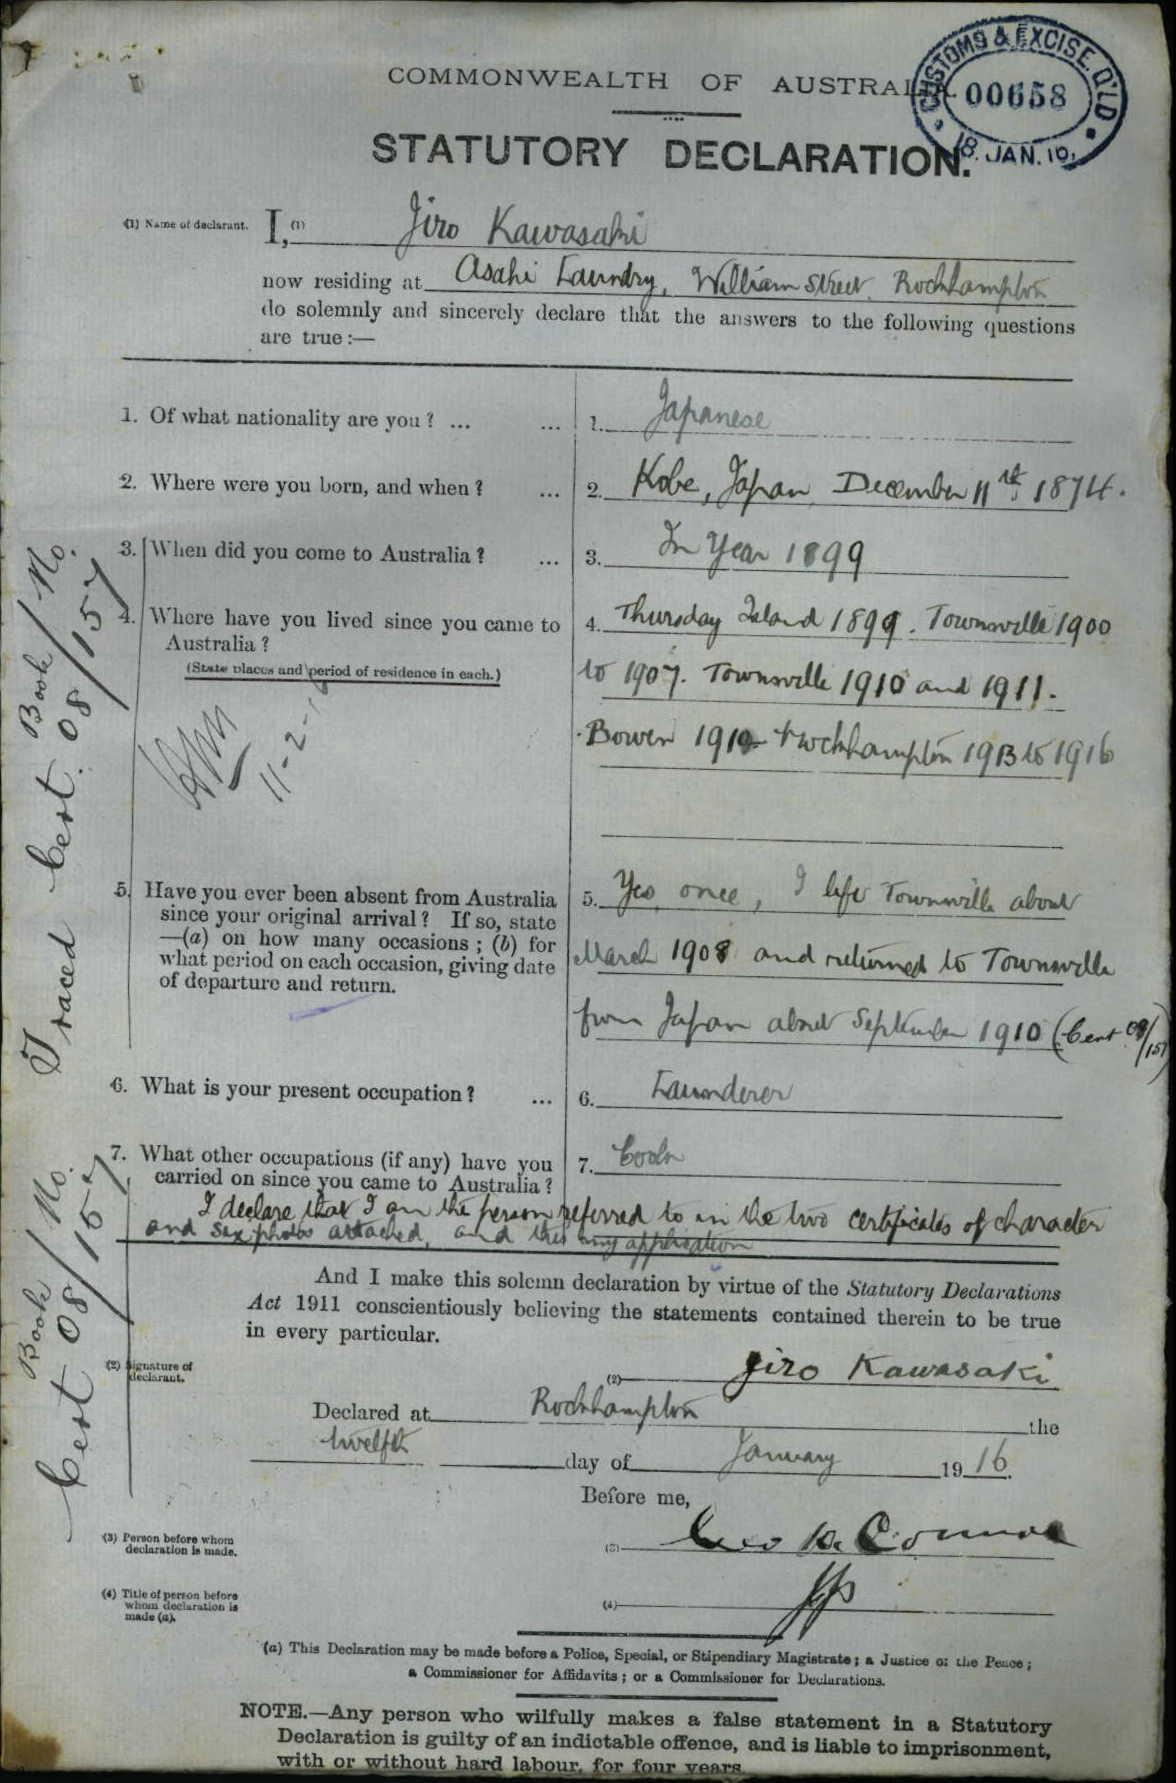 COMMONWEALTH OF AUSTRALIA.
CUSTOMS & EXCISE. Q'LD
00658
18. JAN. 16.
STATUTORY DECLARATION.
(1) Name of declarant. I, (1) Jiro Kawasaki
now residing at Asahi Laundry, William Street, Rockhampton
do solemnly and sincerely declare that the answers to the following questions
are true :—
1. Of what nationality are you ? ... ... 1. Japanese
2. Where were you born, and when ? ... 2. Kobe, Japan, December 11th 1874.
3. When did you come to Australia ? ... 3. In Year 1899
4. Where have you lived since you came to 4. Thursday Island 1899. Townsville 1900
Australia ?
(State places and period of residence in each.) to 1907. Townsville 1910 and 1911.
Bowen 1912 Rockhampton 1913 to 1916
11-2-
5. Have you ever been absent from Australia 5. Yes, once, I left Townsville about
since your original arrival ? If so, state
—(a) on how many occasions ; (b) for March 1908 and returned to Townsville
what period on each occasion, giving date
of departure and return. from Japan about September 1910 (Cert 08/157)
6. What is your present occupation ? ... 6. Launderer
7. What other occupations (if any) have you 7. Cook
carried on since you came to Australia ?
I declare that I am the person referred to in the two certificates of character
and six photos attached, and this my application
And I make this solemn declaration by virtue of the Statutory Declarations
Act 1911 conscientiously believing the statements contained therein to be true
in every particular.
(2) Signature of
declarant. (2) Jiro Kawasaki
Declared at Rockhampton the
twelfth day of January 1916.
Before me,
(3) Person before whom
declaration is made. (3) Geo
(4) Title of person before
whom declaration is
made (a). (4) JP
(a) This Declaration may be made before a Police, Special, or Stipendiary Magistrate ; a Justice of the Peace ;
a Commissioner for Affidavits ; or a Commissioner for Declarations.
NOTE.—Any person who wilfully makes a false statement in a Statutory
Declaration is guilty of an indictable offence, and is liable to imprisonment,
with or without hard labour, for four years.
Traced Cert. Book 08 / No. 157
Cert Book 08 / No. 157